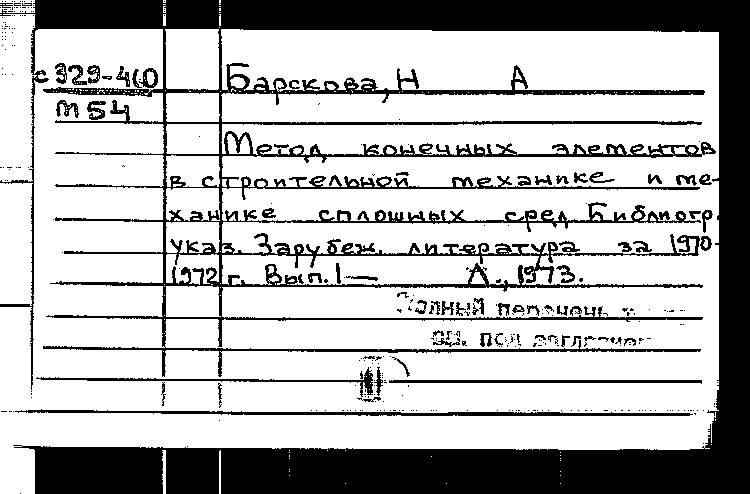 Барскова, Н А
М 54
Метод конечных элементов
в строительной механике и ме-
ханике сплошных сред. Библиогр.
указ. Зарубеж. литература за 1970-
1972 г. Вып. 1 — Л., 1973.
Полный перечень
см. под заглавием